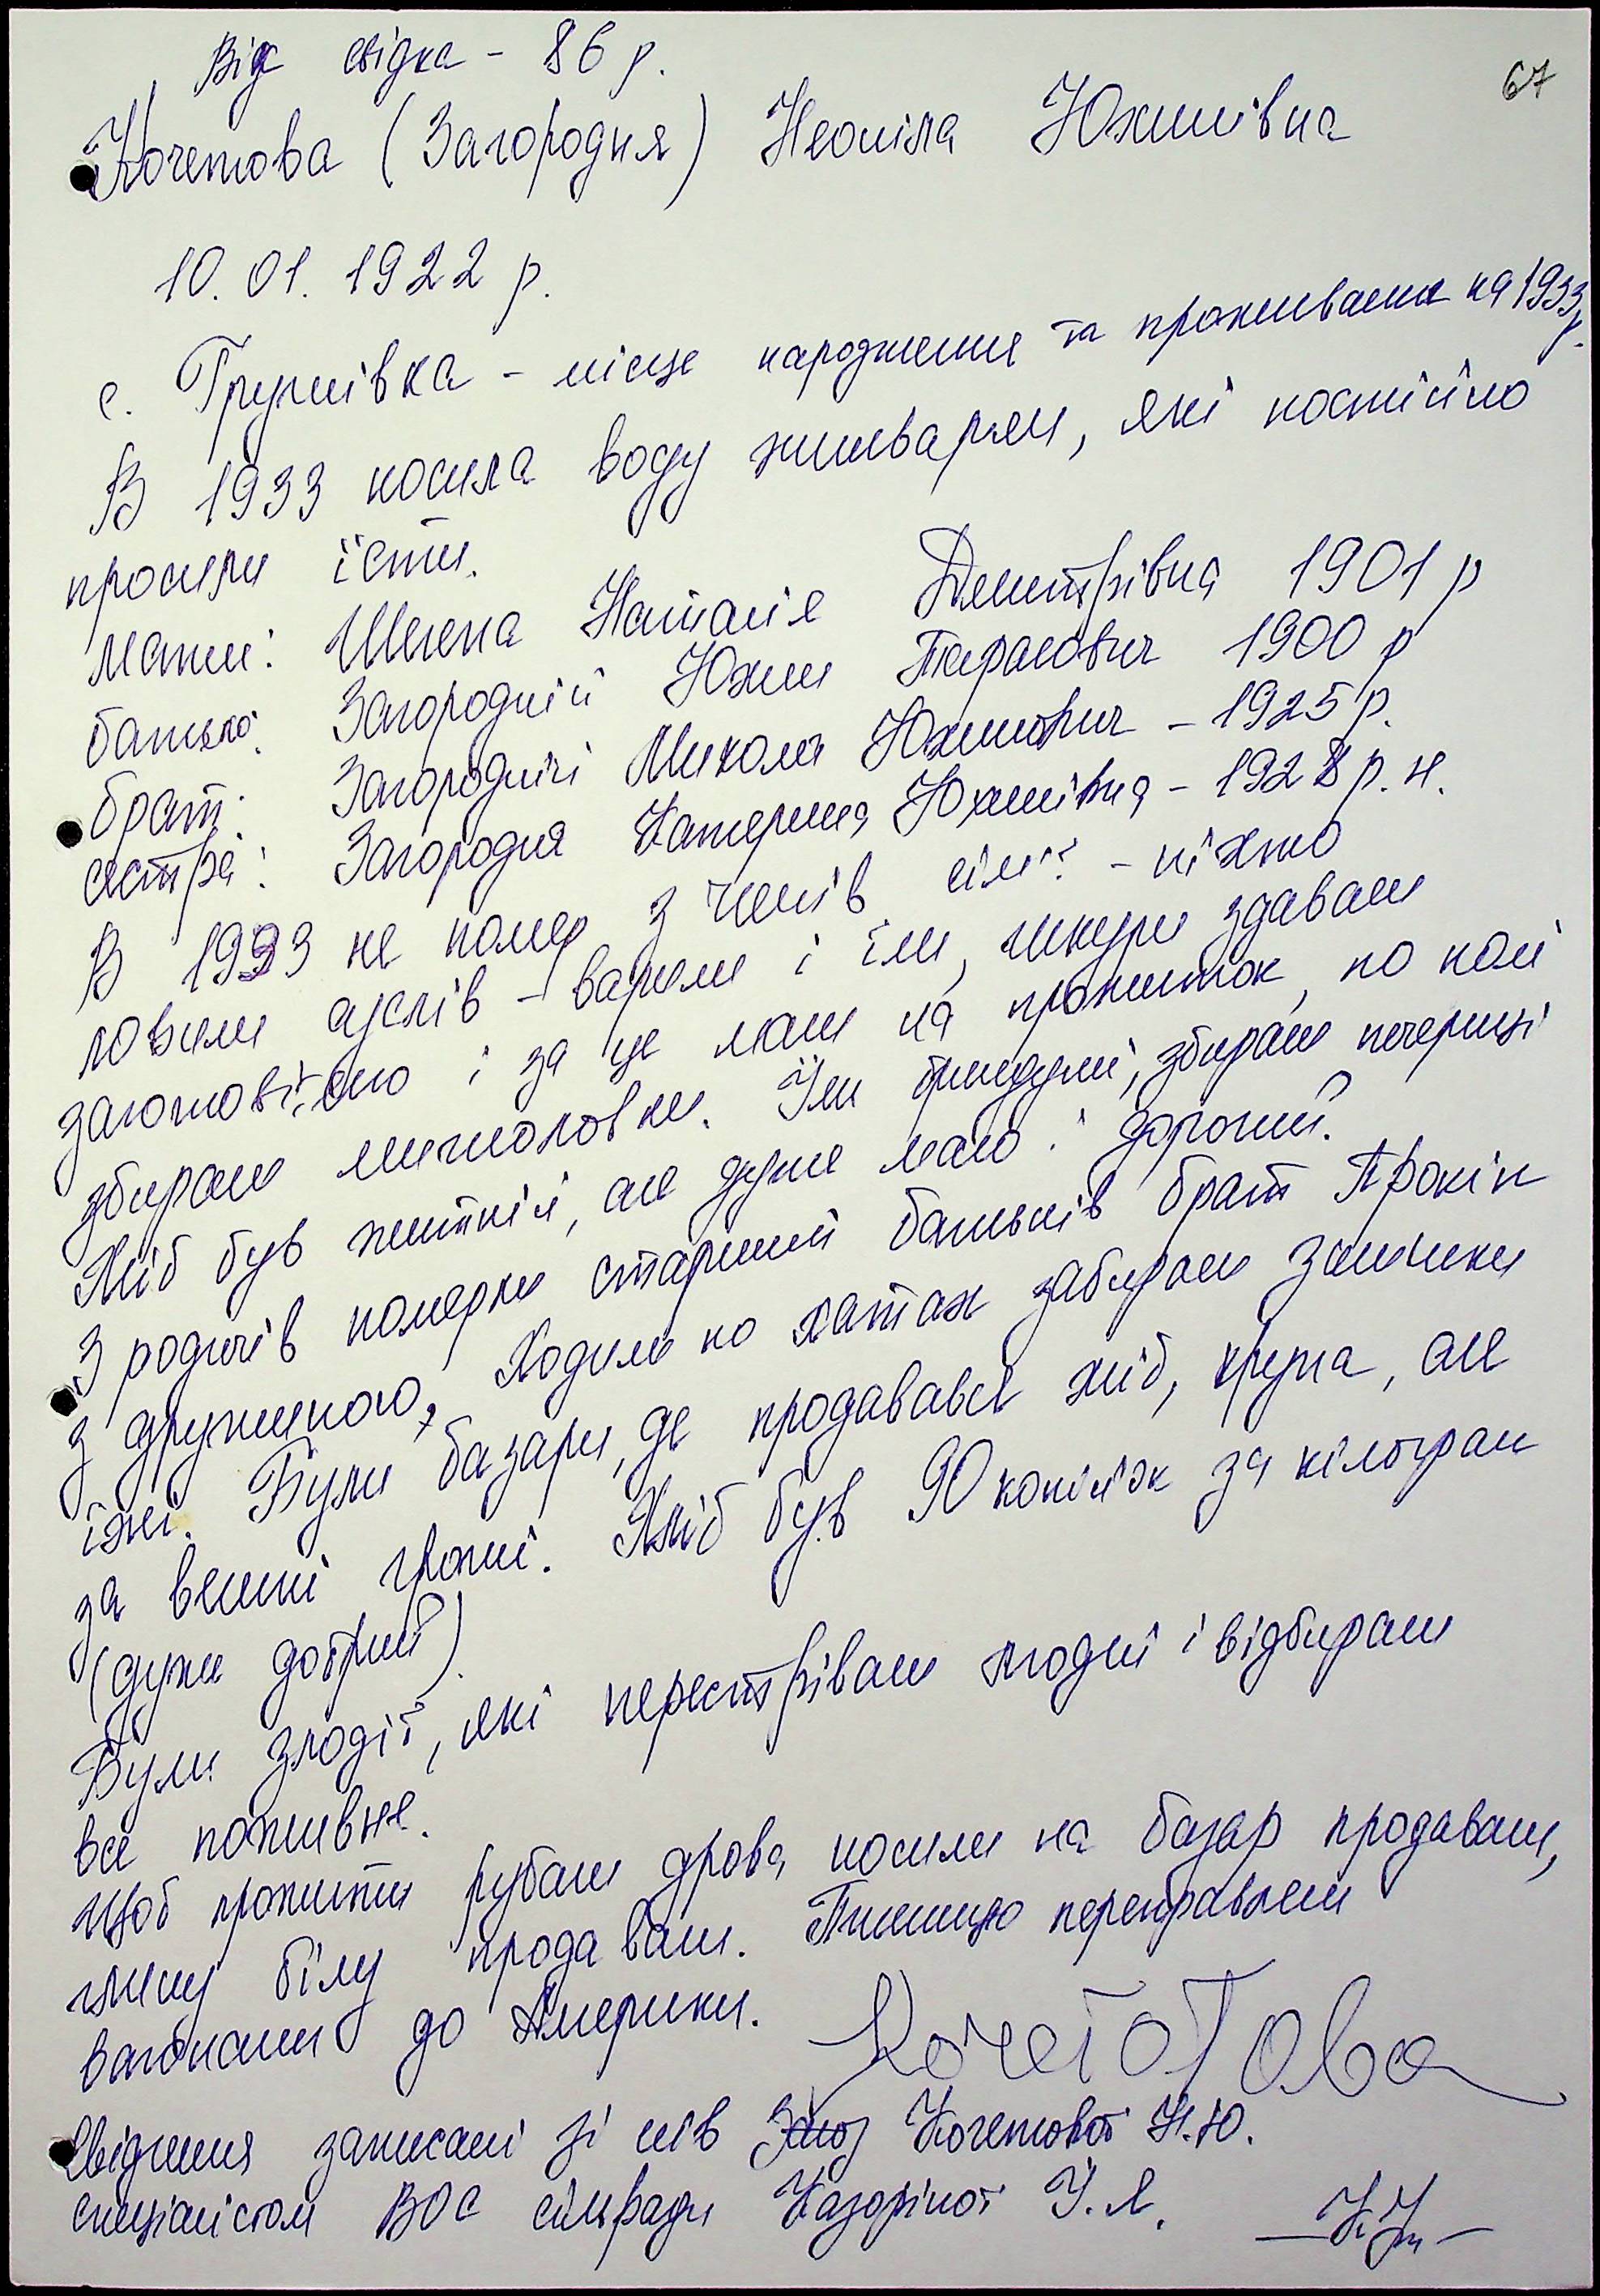 67
Вік свідка - 86 р.
Кочетова (Загородня) Неоніла Юхимівна
10. 01. 1922 р.
с. Грушівка - місце народження та проживання на 1933 р.
В 1933 носила воду школярам, які постійно
просили їсти.
Мати: Наталія Дмитрівна 1901 р
батько: Загородній Юхим Тарасович 1900 р
брат: Загородній Микола Юхимович - 1925 р.
сестра: Загородня Катерина Юхимівна - 1928 р. н.
В 1933 не помер з членів сім'ї - ніхто
ловили - варили і їли, шкури здавали
і за це мали на прожиток, по полі
збирали мишоловки. Їли бриндулі, збирали печериці
Хліб був житній, але дуже мало і дорогий.
З родичів померли старший батьків брат Прокіп
з дружиною. Ходили по хатах забирали залишки
їжі. Були базари, де продавався хліб, крупа, але
за великі гроші. Хліб був 90 копійок за кілограм
(дуже добрий).
Були злодії, які перестрівали людей і відбирали
все поживне.
Щоб прожити рубали дрова носили на базар продавали,
глину білу продавали. Пшеницю переправляли
вагонами до Америки.
Кочетова
Свідчення записані зі слів Кочетової Н.Ю.
спеціалістом ВОС сільради